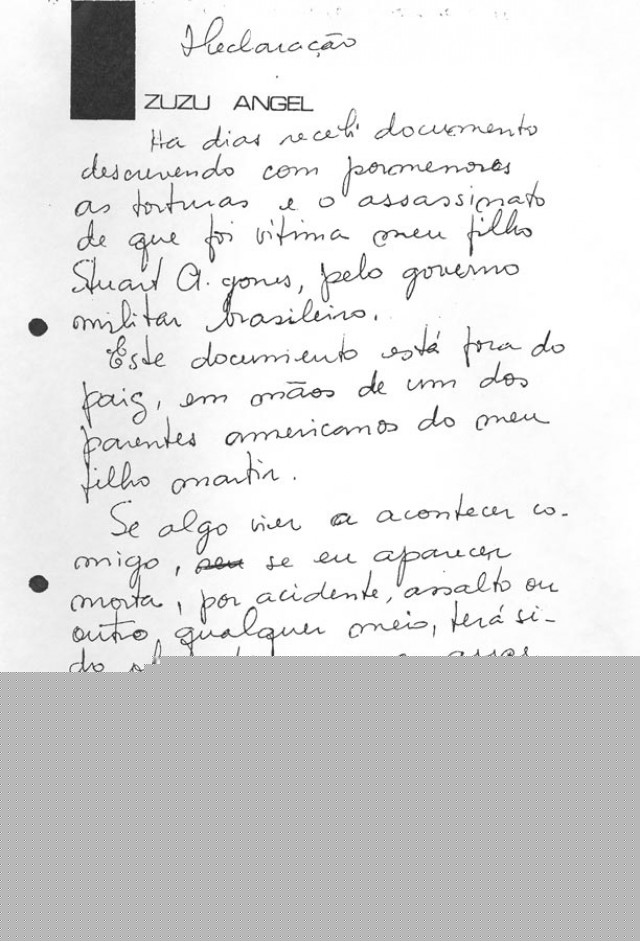 Declaração
ZUZU ANGEL
Ha dias recebi documento
descrevendo com pormenores
as torturas e o assassinato
de que foi vítima meu filho
Stuart A. gomes, pelo governo
militar brasileiro.
Este documento está fora do
paiz, em mãos de um dos
parentes americanos do meu
filho martir.
Se algo vier a acontecer co-
migo, se eu aparecer
morta, por acidente, assalto ou
outro qualquer meio, terá si-
do